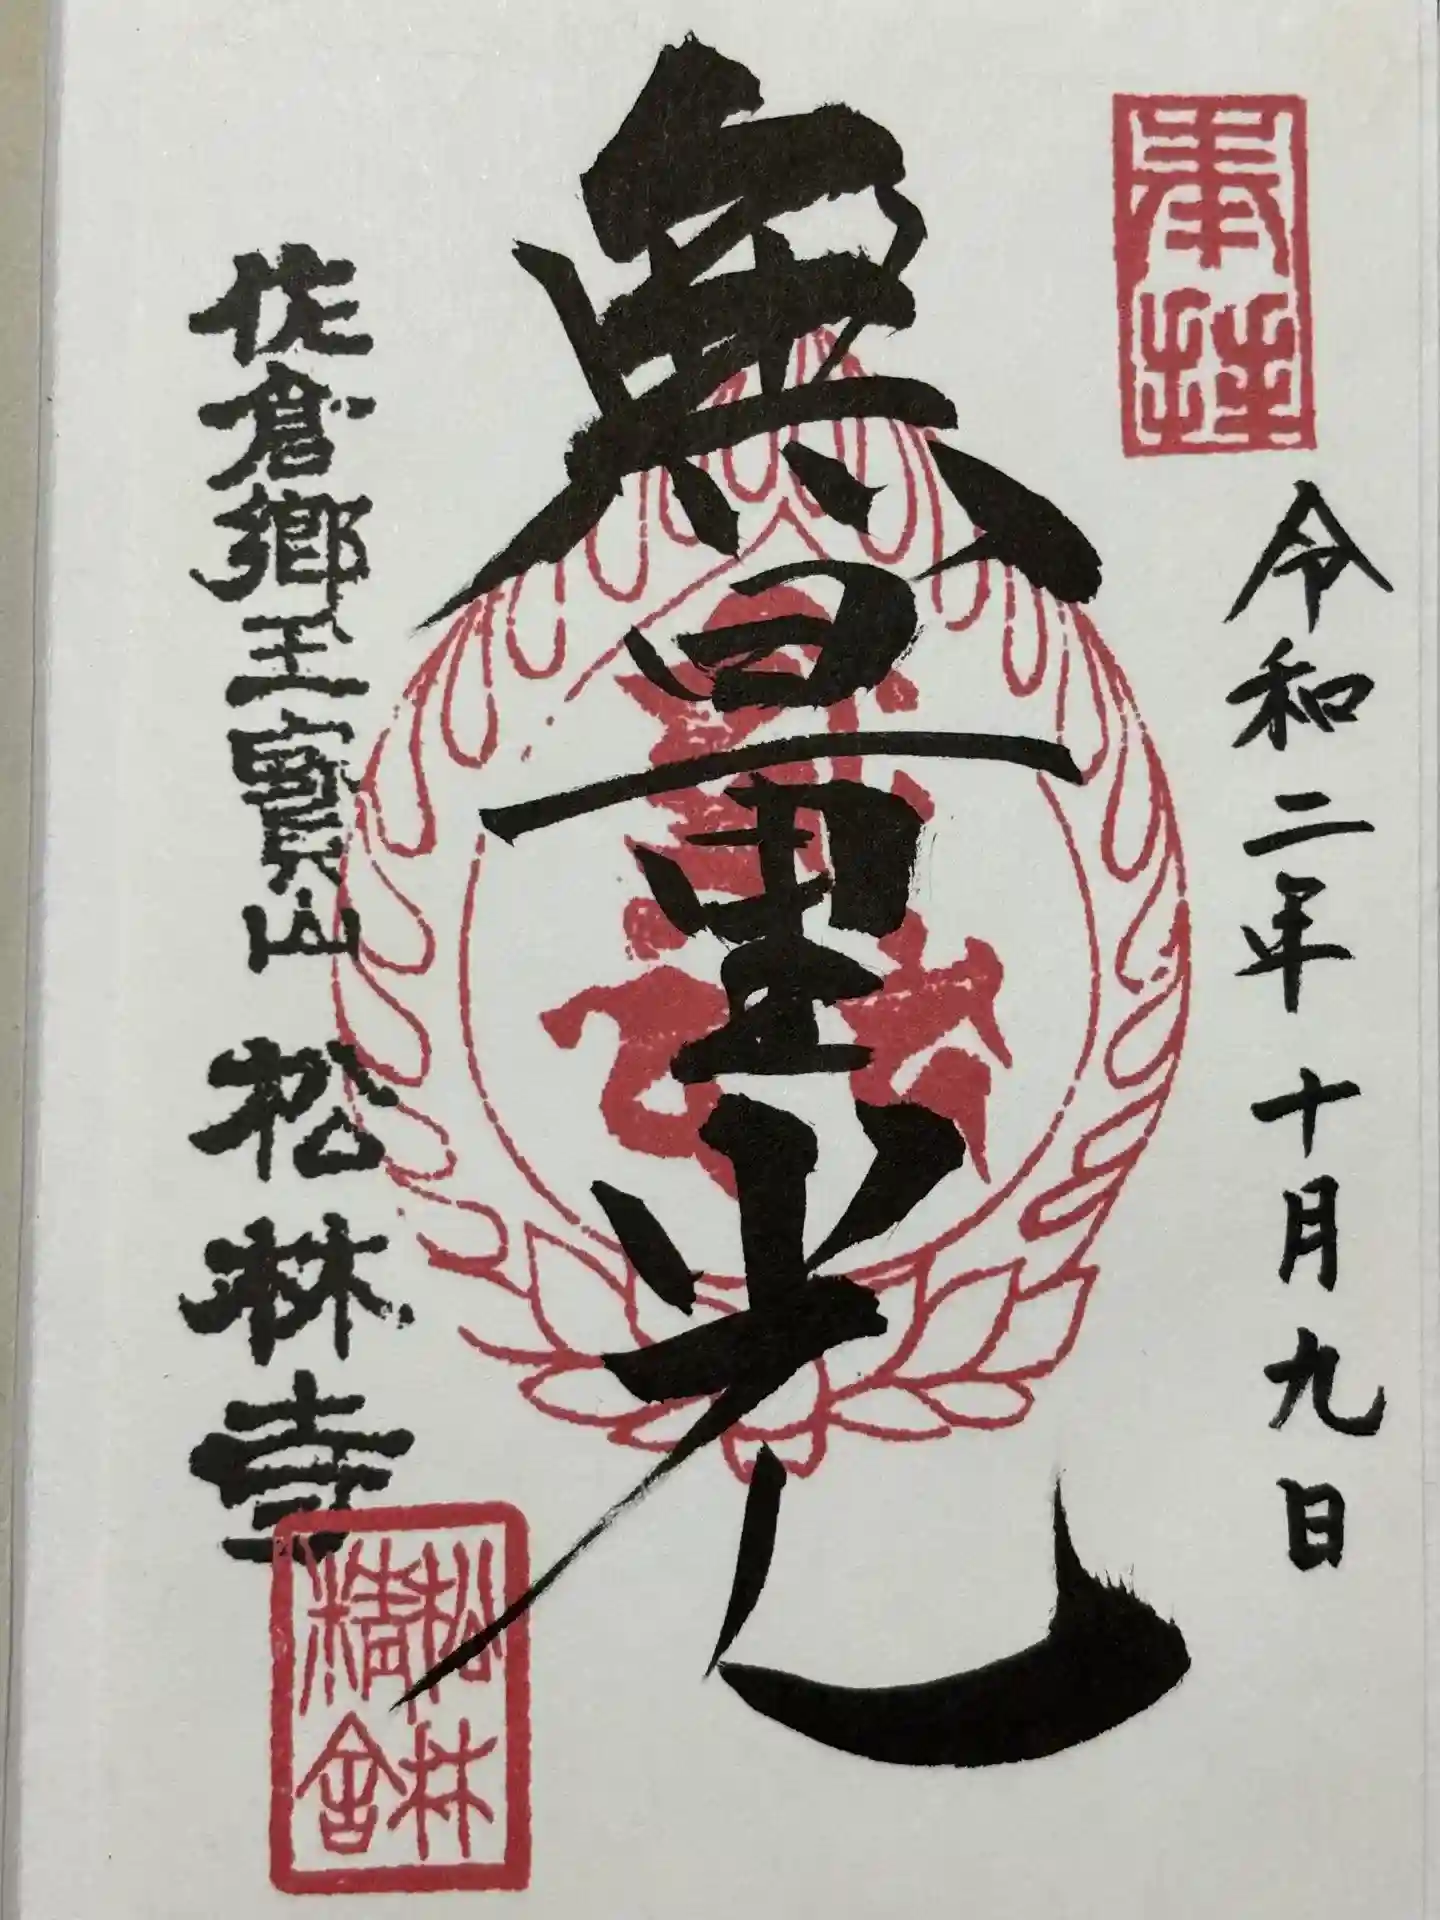 奉拝
令和二年 十月 九日
無量光
佐倉鄉王寶山 松林寺
松林精舍